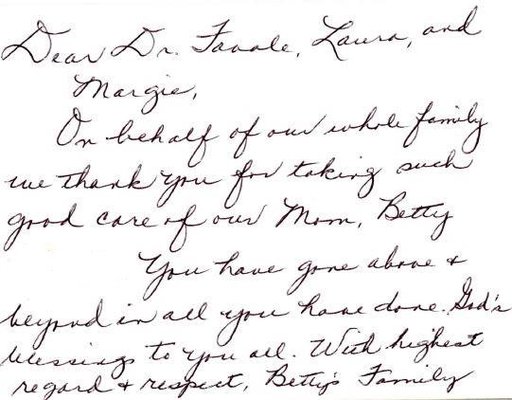 Dear Dr. Favale, Laura, and
Margie,
On behalf of our whole family
we thank you for taking such
good care of our Mom, Betty
You have gone above +
beyond in all you have done. God's
blessings to you all. With highest
regard + respect, Betty's Family